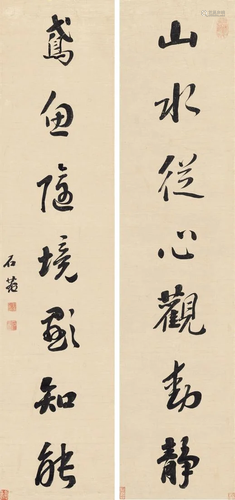 山水從心觀動靜
鳶魚隨境影知能
石菴